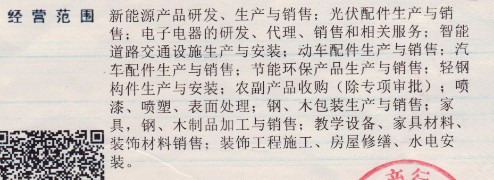 经营范围 新能源产品研发、生产与销售；光伏配件生产与销
售；电子电器的研发、代理、销售和相关服务；智能
道路交通设施生产与安装；动车配件生产与销售；汽
车配件生产与销售；节能环保产品生产与销售；轻钢
构件生产与安装；农副产品收购（除专项审批）；喷
漆、喷塑、表面处理；钢、木包装生产与销售；家
具，钢、木制品加工与销售；教学设备、家具材料、
装饰材料销售；装饰工程施工、房屋修缮、水电安
装。